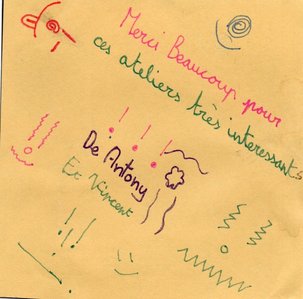 Merci Beaucoup pour
ces ateliers très interessants
! ! !
De Antony
Et Vincent
! ! !